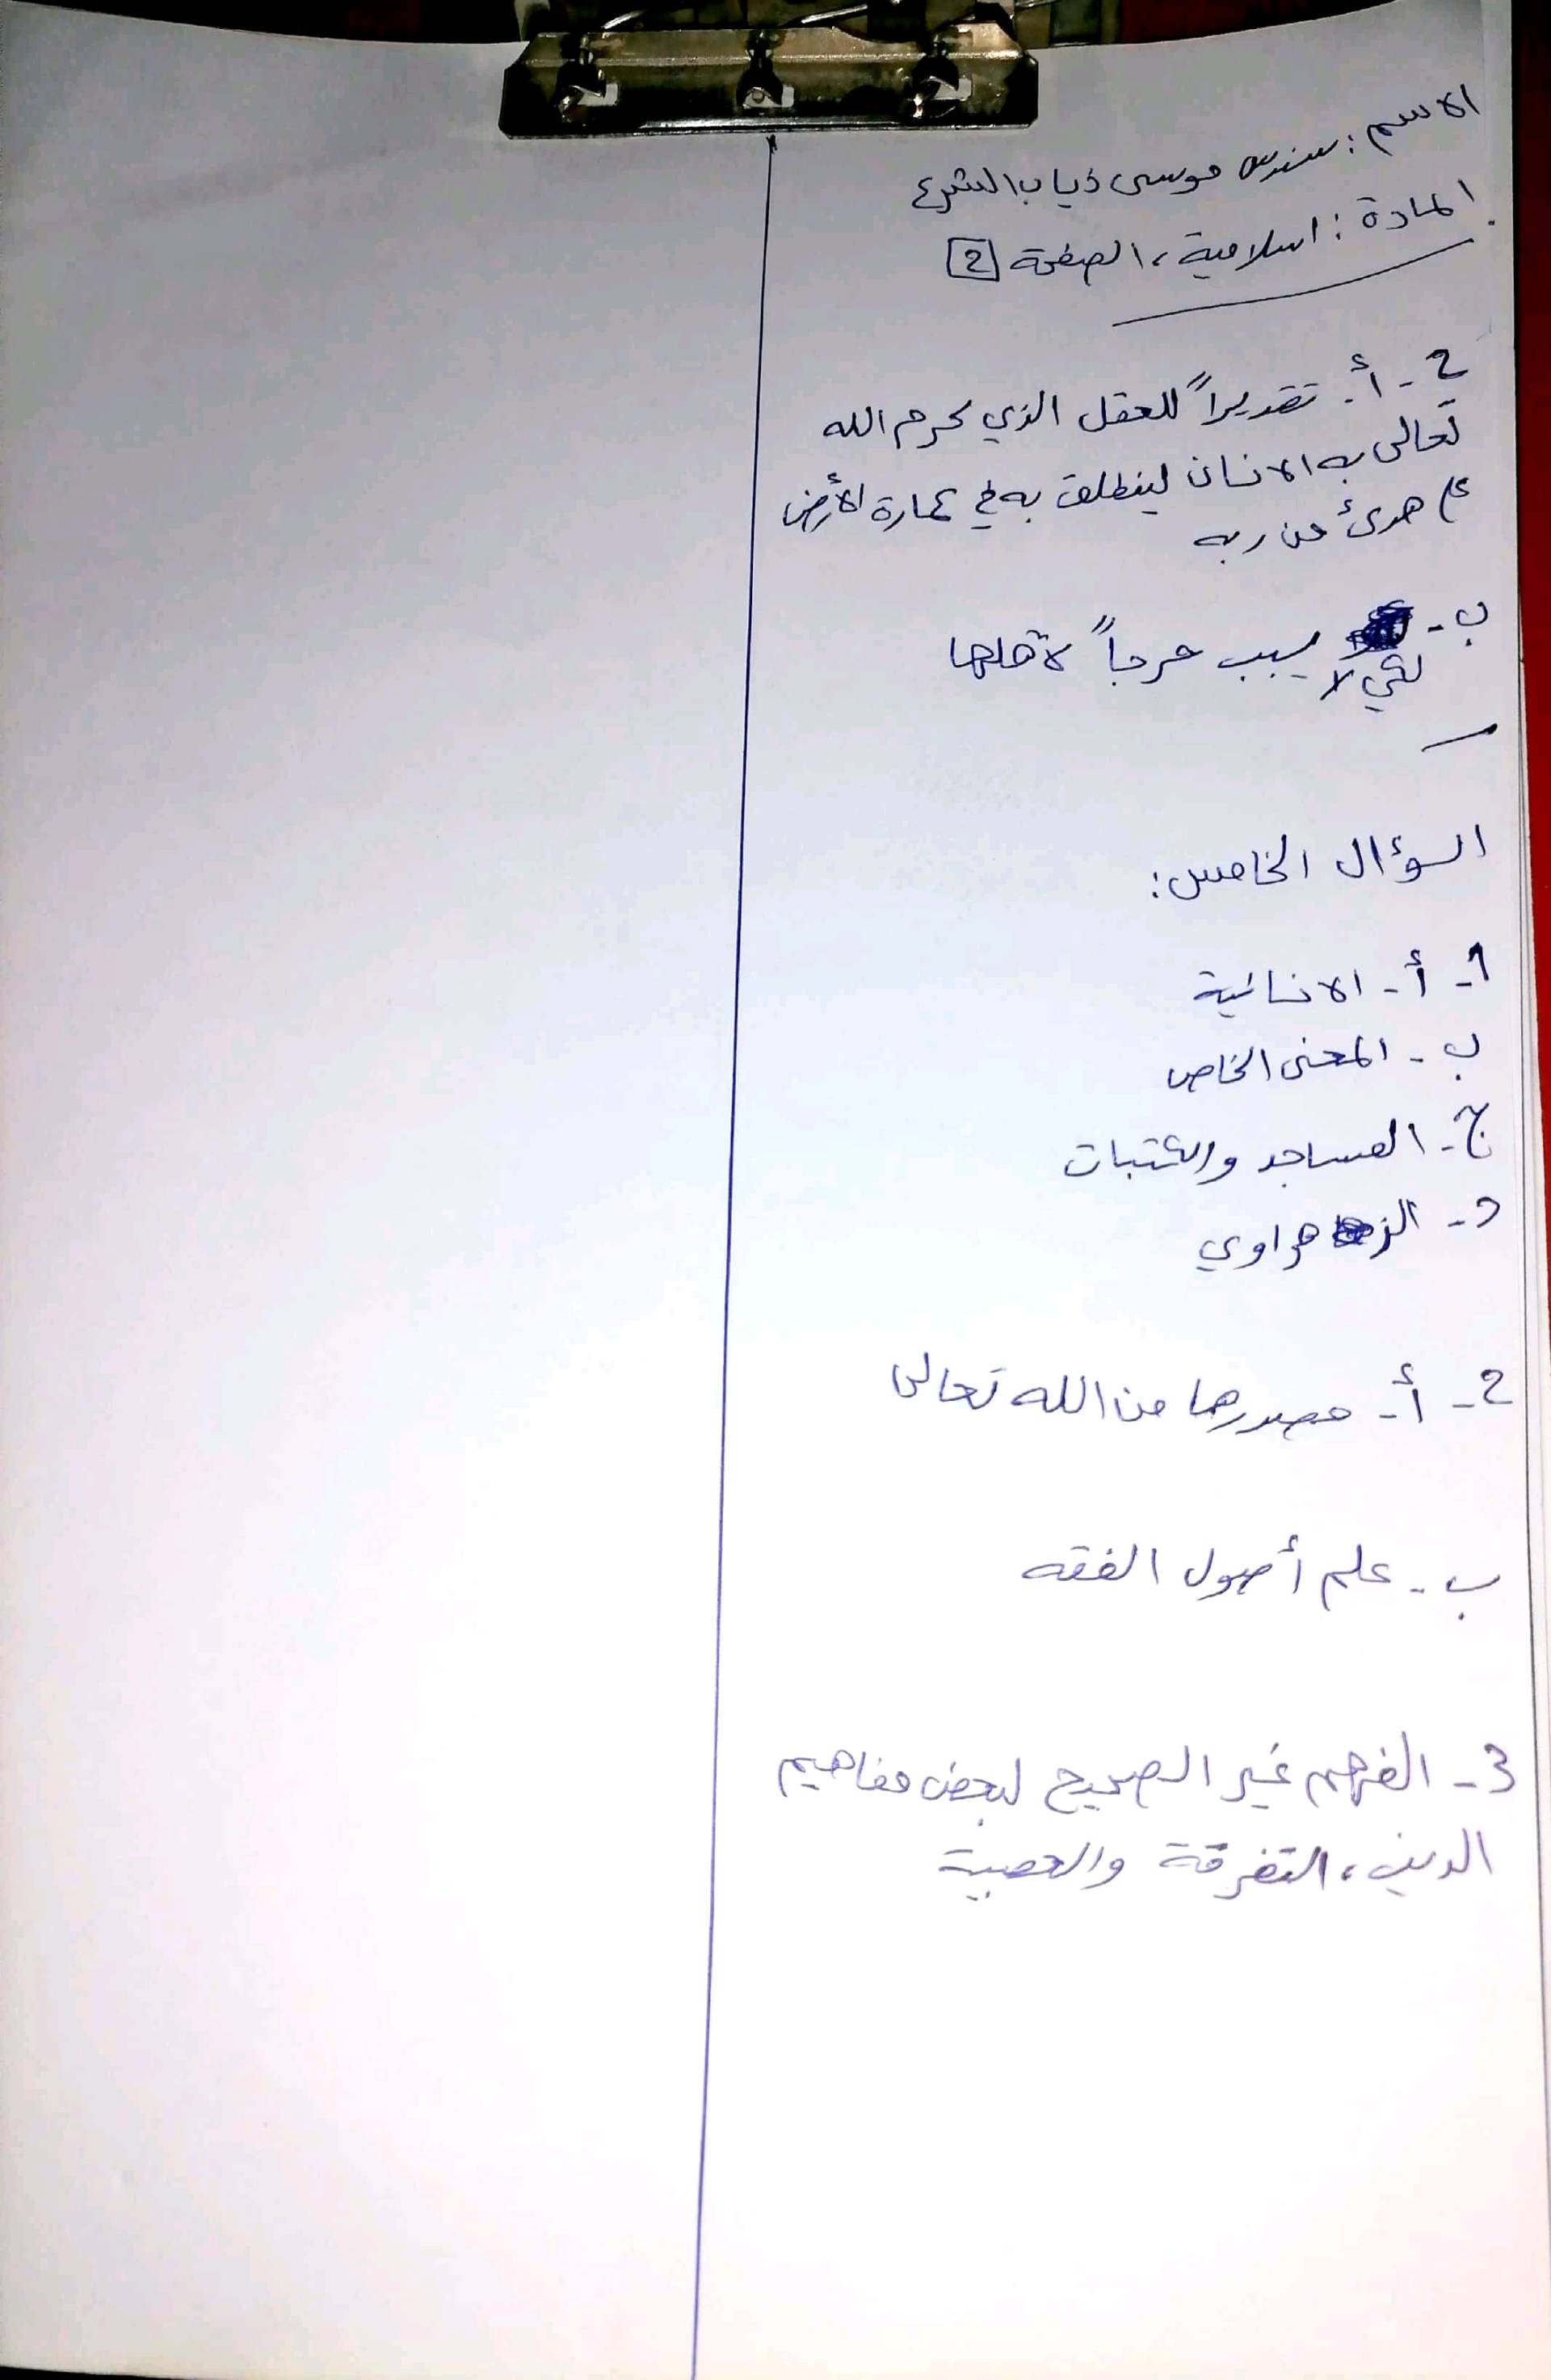 الاسم: سندس موسى ذياب الشرع
المادة: اسلامية، الصفحة 2
2- أ- تقديراً للعقل الذي كرم الله
تعالى به الانسان لينطلق به في عمارة الأرض
على هدىً من ربه
ب- لكي لا يسبب حرجاً لأهلها
السؤال الخامس:
1- أ- الانسانية
ب- المعنى الخاص
ج- المساجد والمكتبات
د- الزهراوي
2- أ- مصدرها من الله تعالى
ب- علم أصول الفقه
3- الفهم غير الصحيح لبعض مفاهيم
الدين، التفرقة والعصبية